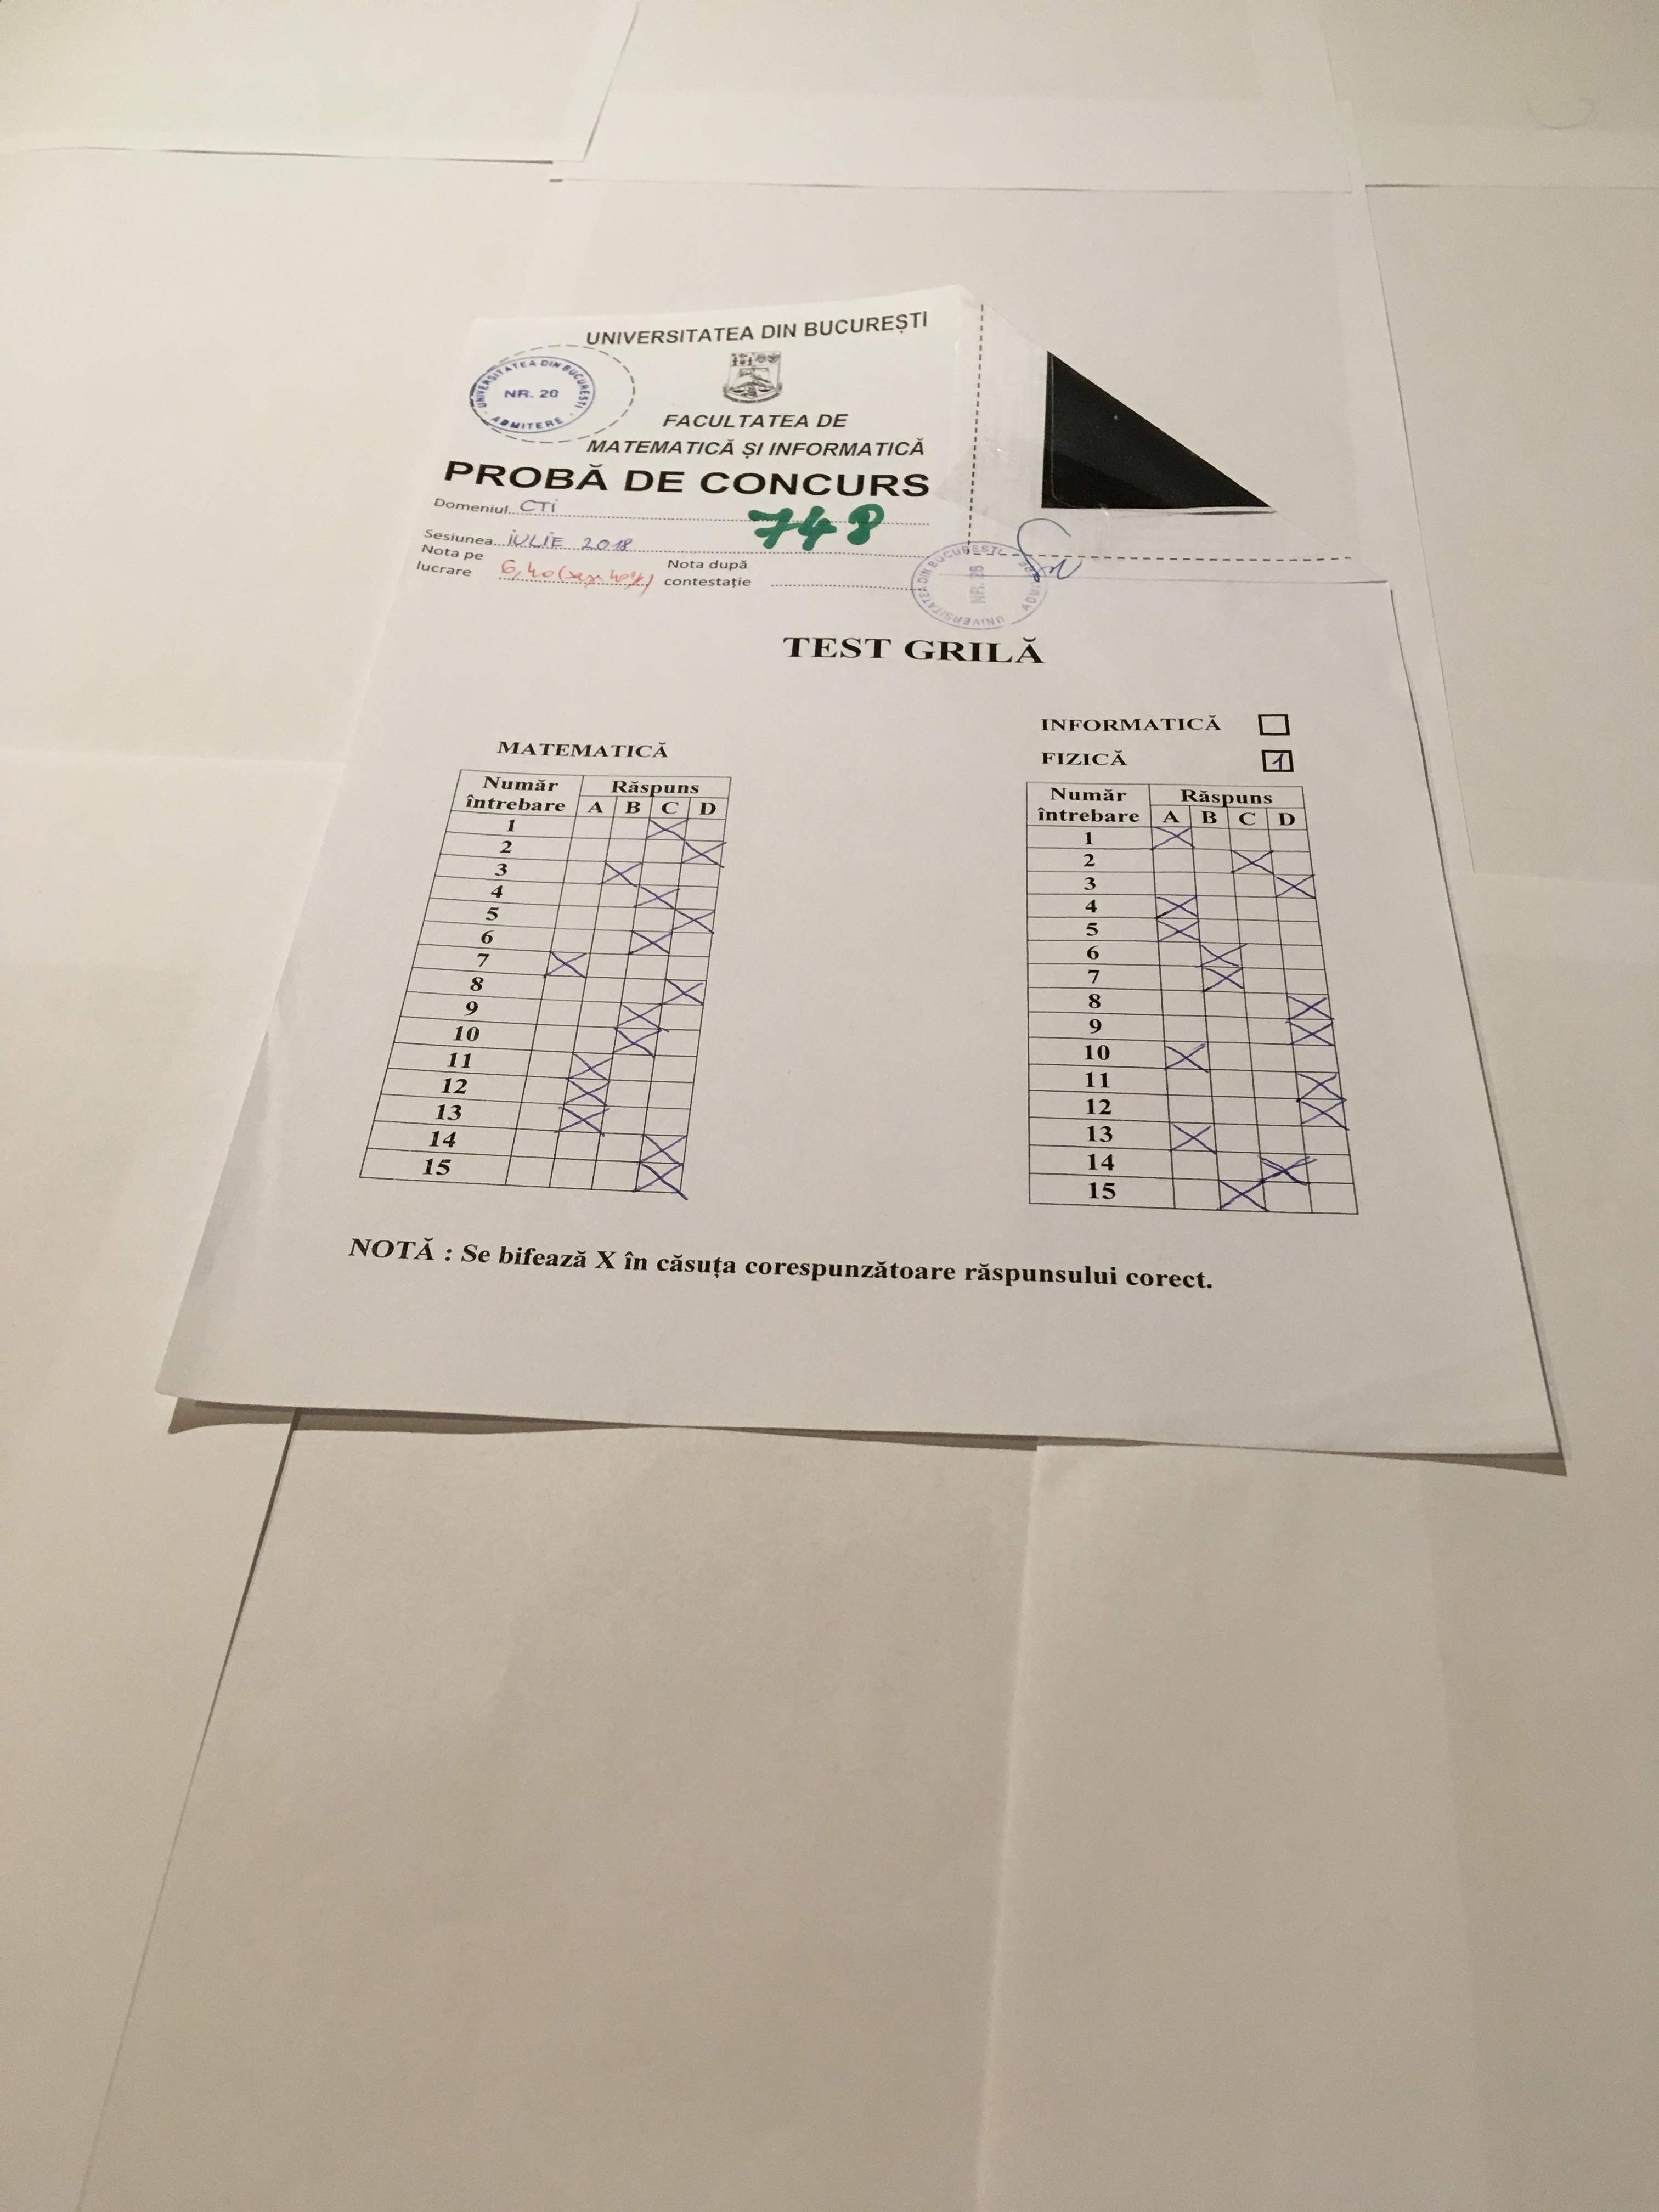 UNIVERSITATEA DIN BUCUREȘTI
UNIVERSITATEA DIN BUCUREȘTI
NR. 20
ADMITERE
FACULTATEA DE
MATEMATICĂ ȘI INFORMATICĂ
PROBĂ DE CONCURS
Domeniul CTI
748
Sesiunea IULIE 2018
Nota pe lucrare 6,40 (șase 40%)
Nota după contestație
UNIVERSITATEA DIN BUCUREȘTI
TEST GRILĂ
INFORMATICĂ
MATEMATICĂ
FIZICĂ 1
Număr întrebare Răspuns
A B C D
1 X
2 X
3 X
4 X
5 X
6 X
7 X
8 X
9 X
10 X
11 X
12 X
13 X
14 X
15 X
Număr întrebare Răspuns
A B C D
1 X
2 X
3 X
4 X
5 X
6 X
7 X
8 X
9 X
10 X
11 X
12 X
13 X
14 X
15 X
NOTĂ : Se bifează X în căsuța corespunzătoare răspunsului corect.